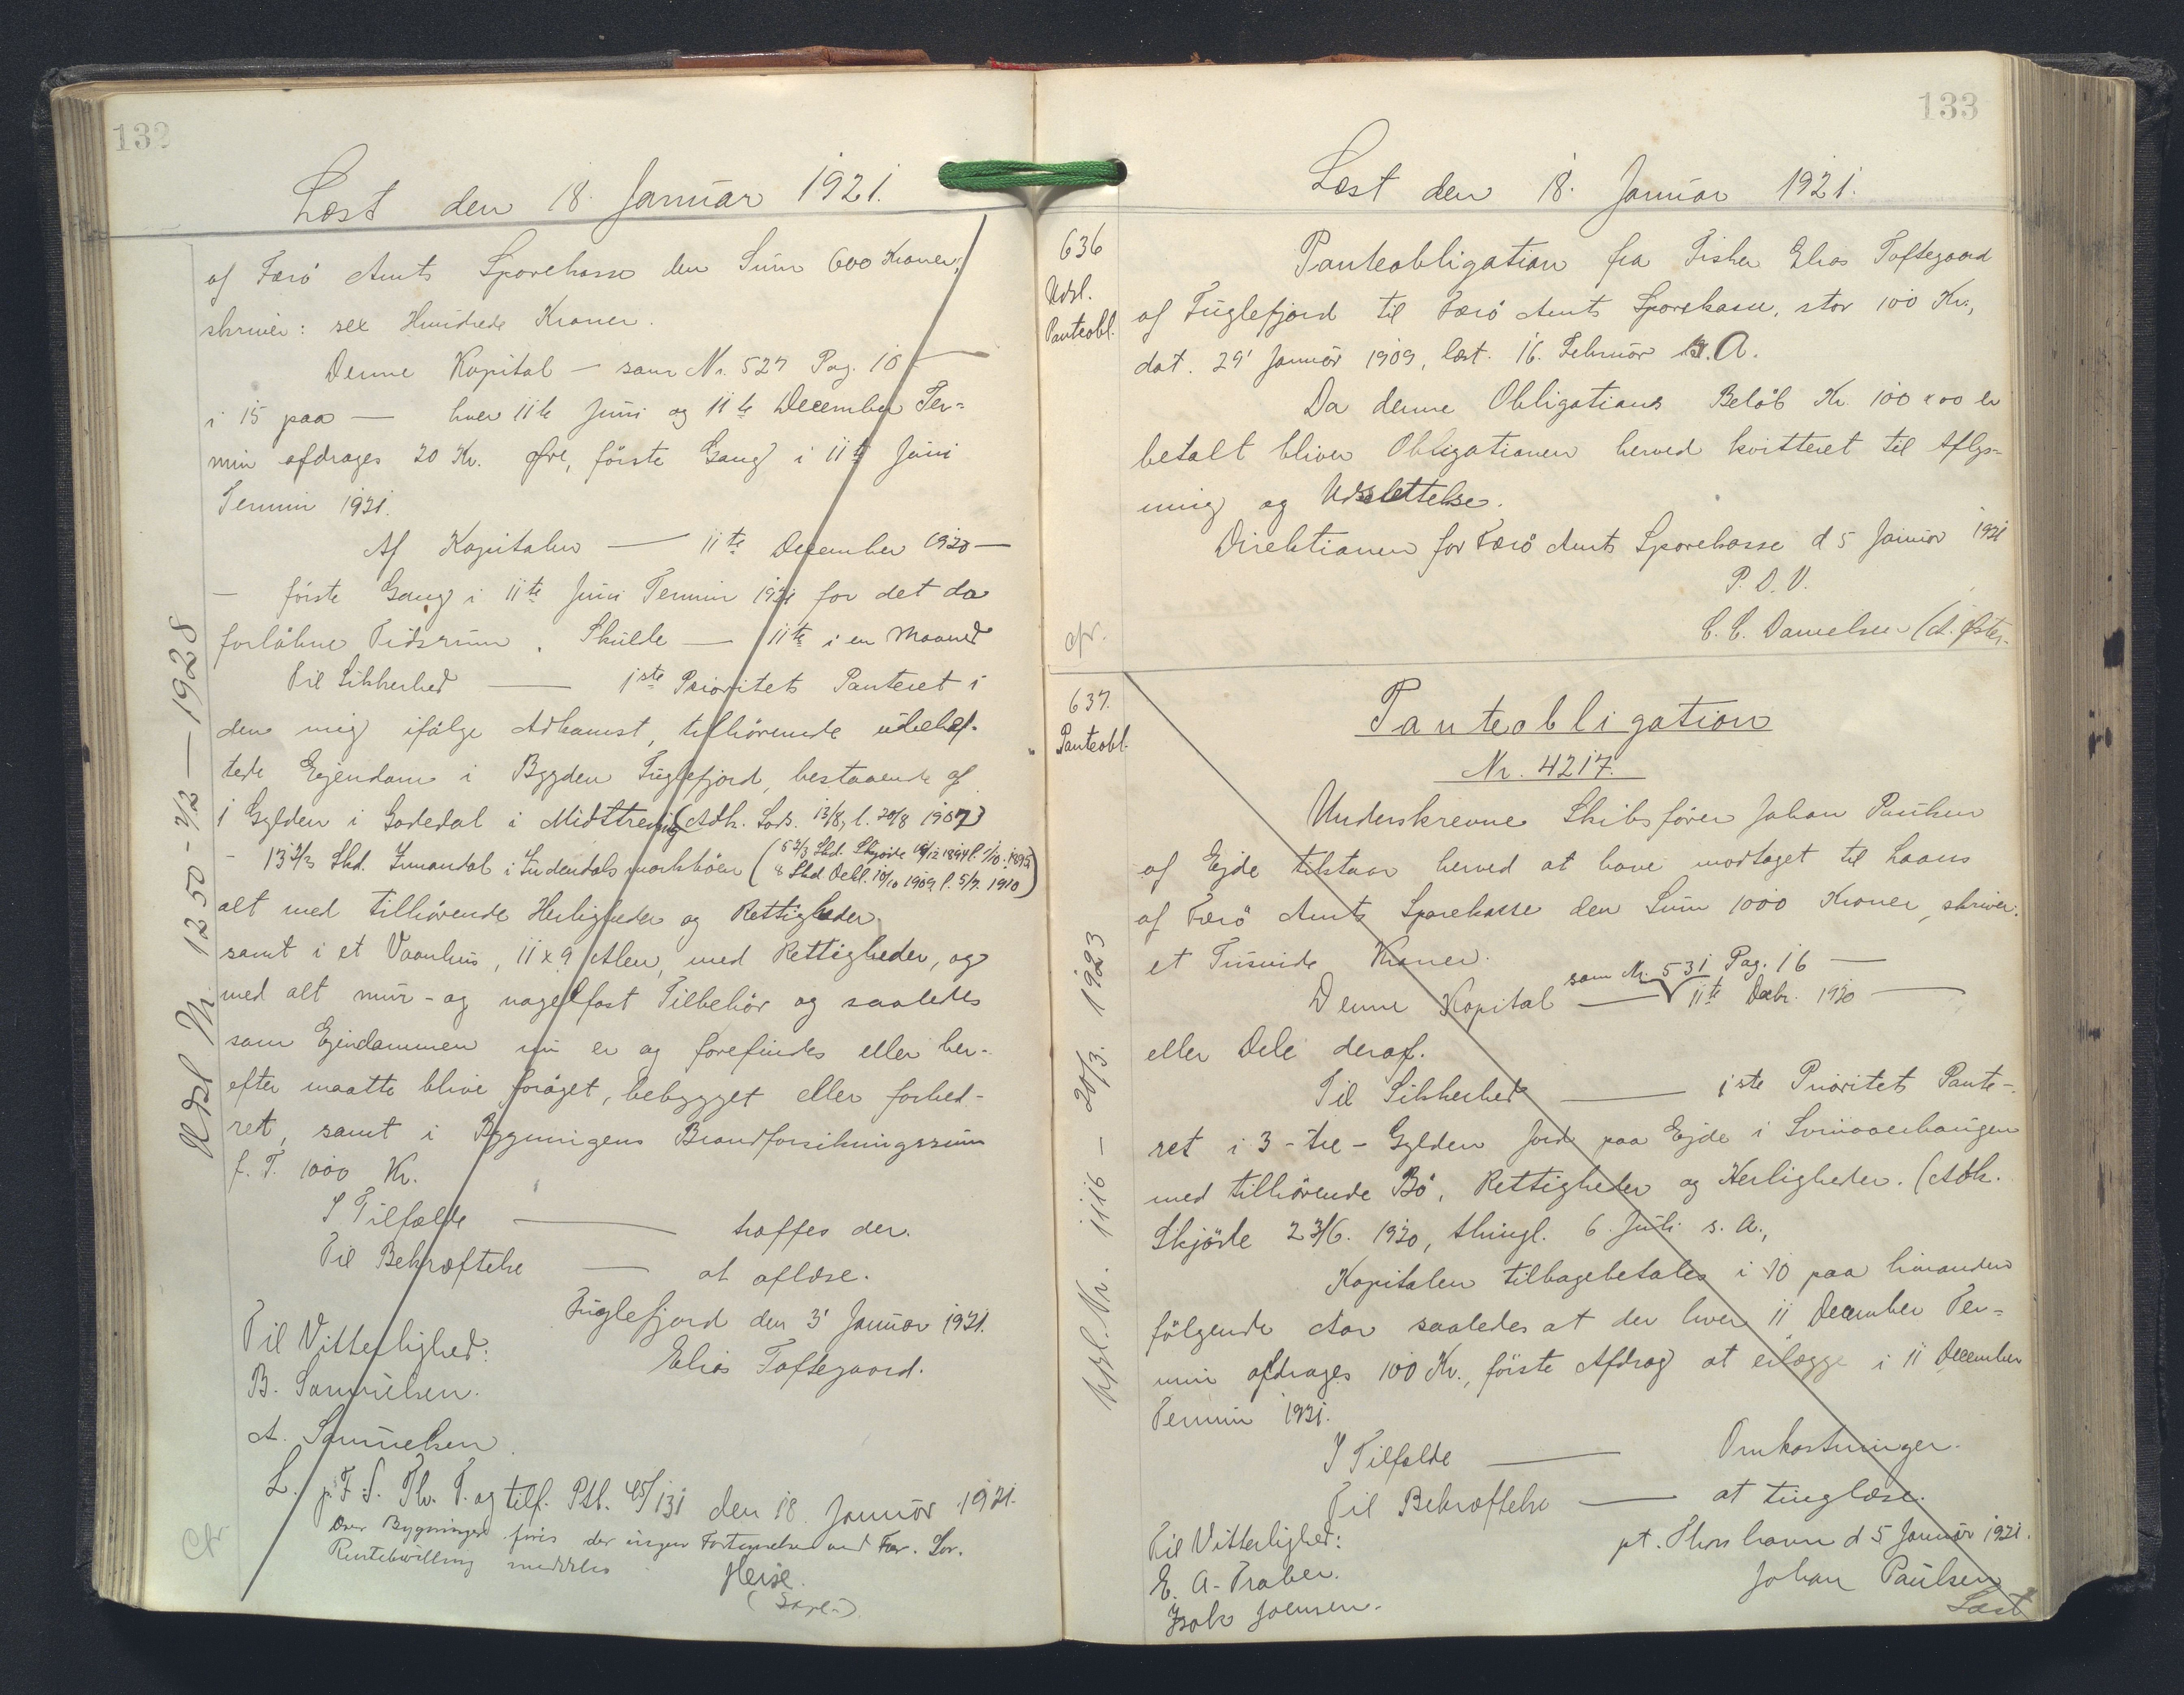 132
Læst den 18. Januar 1921.
af Færö Amts Sparekasse den Sum 600 Kroner,
skriver: sex Hundrede Kroner.
Denne Kapital — som Nr. 527 Pag. 10 —
i 15 paa — hver 11te Juni og 11te December Ter=
min afdrages 20 Kr. Øre, förste Gang i 11te Juni
Termin 1921.
Af Kapitalen — 11te December 1920 —
— förste Gang i 11te Juni Termin 1921 for det da
forløbne Tidsrum. Skulde — 11te i en Maaned
Til Sikkerhed — 1ste Prioritets Panteret i
den mig ifölge Adkomst, tilhörende ubehæf-
tede Ejendom i Bygden Fuglefjord, bestaaende af
1 Gylden i Gadedal i Midttreding (Adk. Lods. 13/8, l. 20/8 1907)
- 13 2/3 Skd. Innandal i Sudendals markböen (5 2/3 Skd. Skjöde 18/12 1894 l. 1/10 1895
8 Skd Dekl. 10/10 1909 l. 5/7. 1910)
alt med tilhörende Herligheder og Rettigheder,
samt i et Vaanhus, 11 x 9 Alen, med Rettigheder, og
med alt mur- og nagelfast Tilbehör og saaledes
som Ejendommen nu er og forefindes eller her-
efter maatte blive foröget, bebygget eller forbed-
ret, samt i Bygningens Brandforsikringssum
f. T. 1000 Kr.
I Tilfælde — træffes der.
Til Bekræftelse — at aflæse.
Fuglefjord den 3' Januar 1921.
Til Vitterlighed: Elias Toftegaard.
B. Samuelsen.
A. Samuelsen.
L. p. F. S. Th. T. og tilf. Ptb. 45/131 den 18. Januar 1921.
Over Bygningen findes der ingen Fortegnelse ved Fær. Sor.
Rentebevilling meddeles
Heise.
Cfr.
Udsl Nr. 1250 - 4/12 — 1928
133
Læst den 18. Januar 1921.
636
Udsl.
Panteobl.
Panteobligation fra Fisker Elias Toftegaard
af Fuglefjord til Færö Amts Sparekasse, stor 100 Kr.,
dat. 29' Januar 1909, læst. 16. Februar s. A.
Da denne Obligations Belöb Kr. 100 x 00 er
betalt bliver Obligationen herved kvitteret til Aflys=
ning og Udslettelse.
Direktionen for Færö Amts Sparekasse d 5 Januar 1921
P. D. V.
C. C. Danielsen / A. Øster-
cfr.
637.
Panteobl.
Panteobligation
Nr. 4217.
Underskrevne Skibsförer Johan Paulsen
af Ejde tilstaar herved at have modtaget til Laans
af Færö Amts Sparekasse den Sum 1000 Kroner, skriver:
et Tusinde Kroner.
som Nr. 531 Pag. 16 —
Denne Kapital — 11te Decbr. 1920 —
eller Dele deraf.
Til Sikkerhed — 1ste Prioritets Pante-
ret i 3 - tre - Gylden Jord paa Ejde i Svinaaerhaugen
med tilhörende Bö, Rettigheder og Herligheder. (Adk.
Skjöde 23/6. 1920, thingl. 6 Juli s. A.,
Kapitalen tilbagebetales i 10 paa hinanden
fölgende Aar saaledes at der hver 11 December Ter=
min afdrages 100 Kr., förste Afdrag at erlægge i 11 December
Termin 1921.
I Tilfælde — Omkostninger.
Til Bekræftelse — at tinglæse.
Til Vitterlighed: pt. Thorshavn d 5 Januar 1921.
E. A. Traber. Johan Paulsen
Isak Joensen. Læst
Nr. 1116 - 20/3. 1923